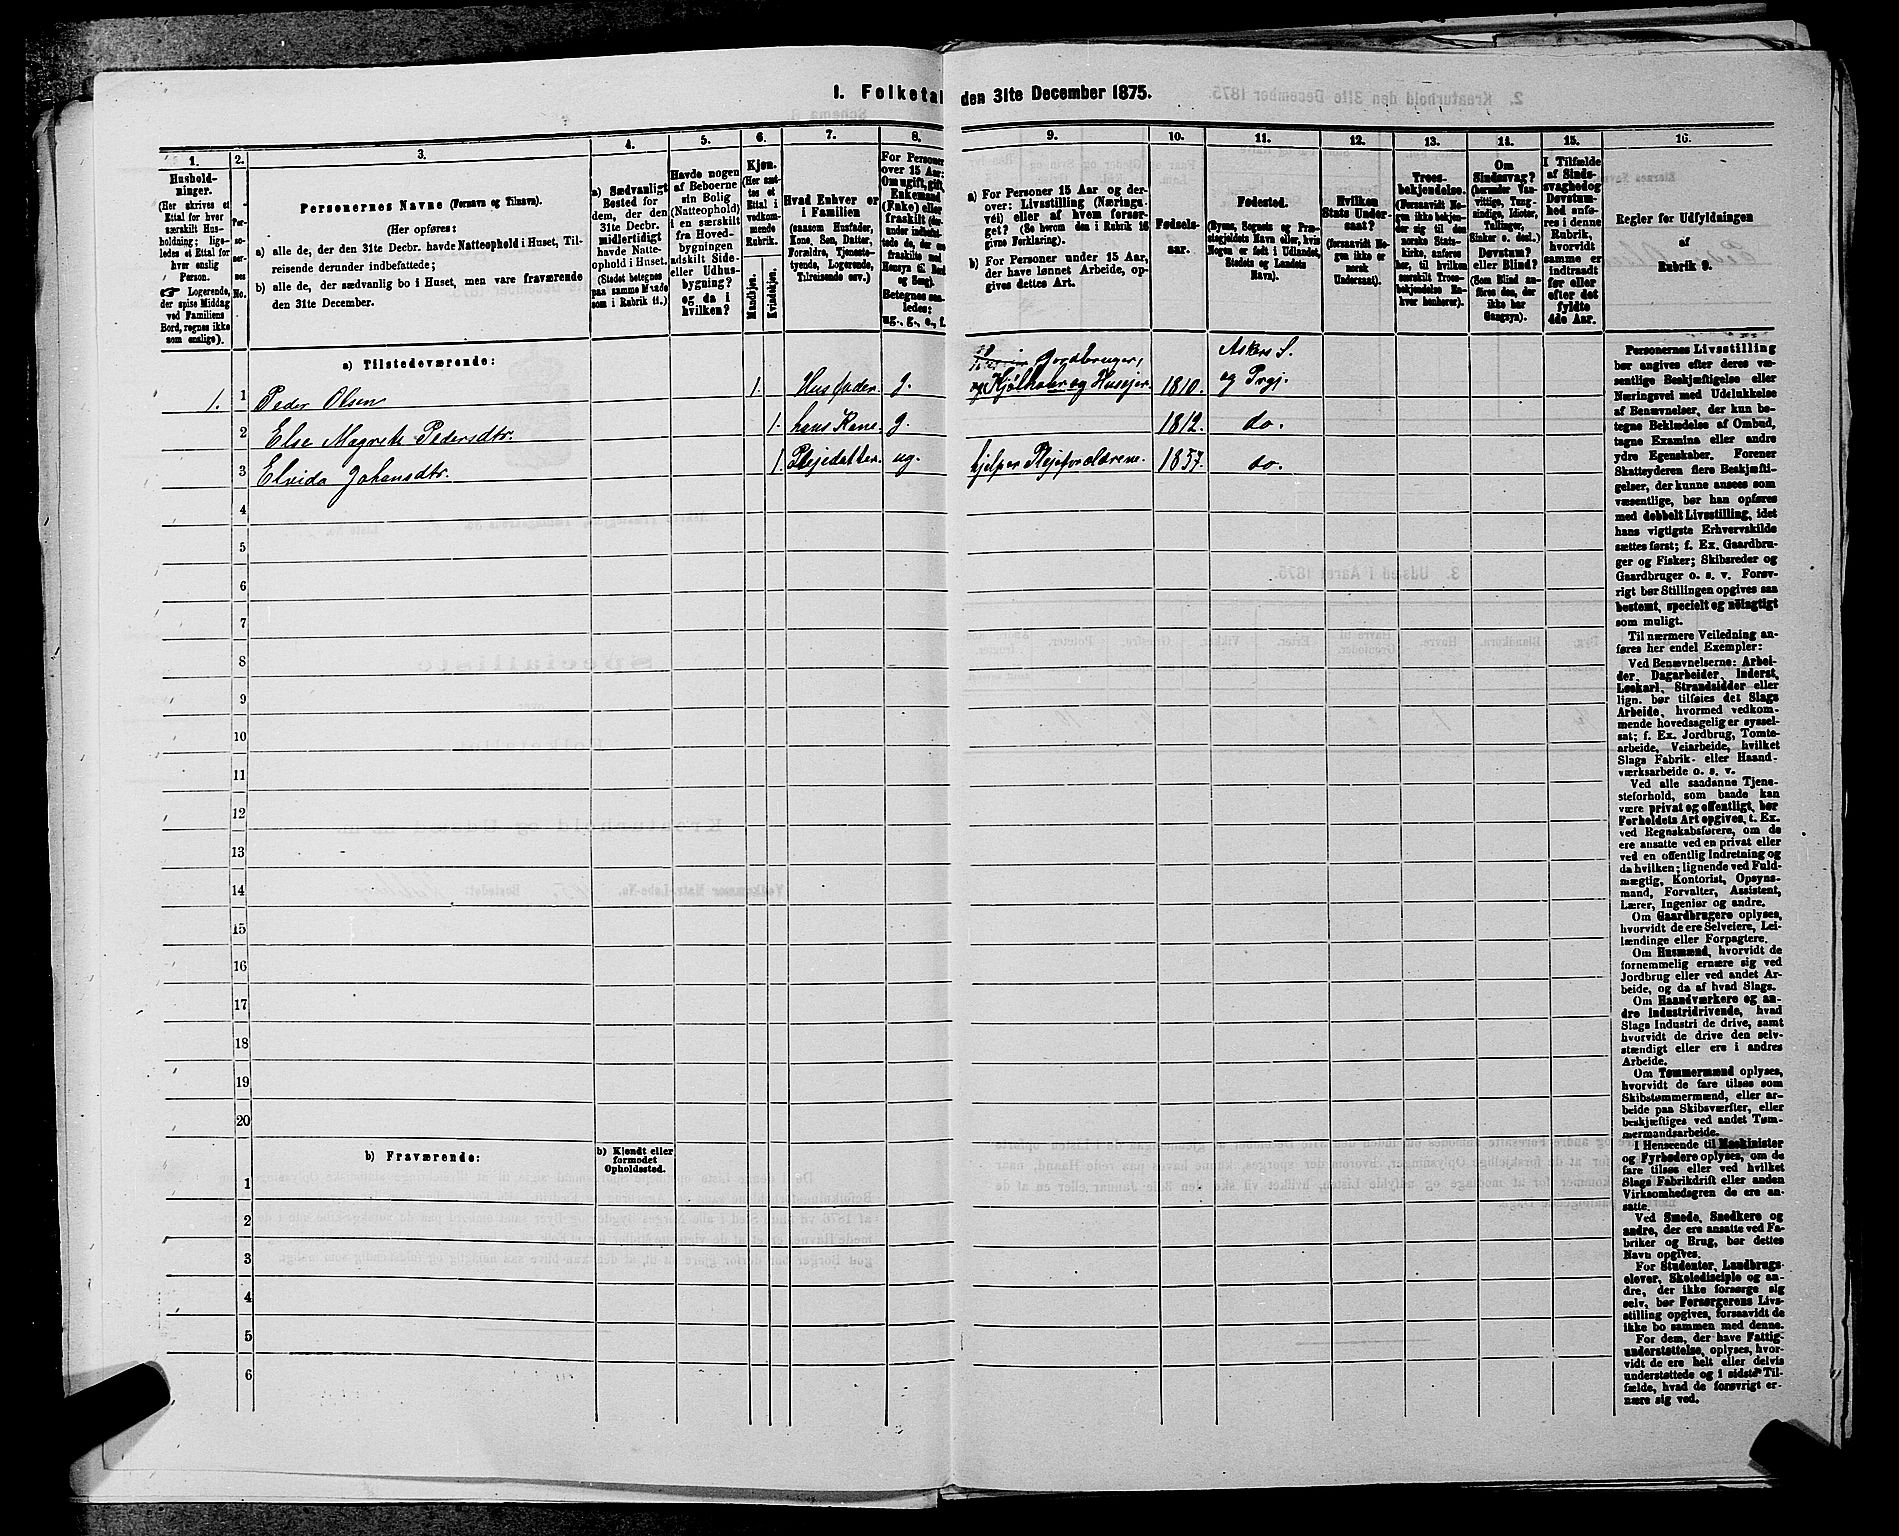 1. Folketal den 31te December 1875.
1. 2. 3. 4. 5. 6. 7. 8. 9. 10. 11. 12. 13. 14. 15. 16.
Hushold-
ninger.
(Her skrives et
Ettal for hver
særskilt Hus-
holdning; lige-
ledes et Ettal for
hver enslig
Person.
☞ Logerende,
der spise Middag
ved Familiens
Bord, regnes ikke
som enslige).
Per-
so-
ner-
nes
No.
Personernes Navne (Fornavn og Tilnavn).
(Her opføres:
a) alle de, der den 31te Decbr. havde Natteophold i Huset, Til-
reisende derunder indbefattede;
b) alle de, der sædvanlig bo i Huset, men vare fraværende
den 31te December.
a) Sædvanligt
Bosted for
dem, der den
31te Decbr.
midlertidigt
havde Natte-
ophold i Huset.
(Stedet betegnes
paa samme Maade
som i Rubrik 11.)
Havde nogen
af Beboerne
sin Bolig
(Natteophold)
i en særskilt
fra Hoved-
bygningen
adskilt Side-
eller Udhus-
bygning?
og da i
hvilken?
Kjøn.
(Her sæt-
tes et
Ettal i
vedkom-
mende
Rubrik.
Mandkjøn.
Kvindekjøn.
Hvad Enhver er
i Familien
(saasom Husfader,
Kone, Søn, Datter,
Forældre, Tjeneste-
tyende, Logerende,
Tilreisende osv.)
For Personer
over 15 Aar:
Om ugift, gift,
Enkemand
(Enke) eller
fraskilt
Betegnes saa-
ledes:
ug., g., e., f.
a) For Personer 15 Aar og der-
over: Livsstilling (Nærings-
vei) eller af hvem forsør-
get? (Se herom den i Rubrik 16
givne Forklaring).
b) For Personer under 15 Aar,
der have lønnet Arbeide, op-
gives dettes Art.
Fødsels-
aar.
Fødested.
(Byens, Sognets og Præ-
stegjeldets Navn eller, hvis
Nogen er født i Udlandet,
Stedets og Landets
Navn).
Hvilken
Stats Under-
saat?
(forsaavidt No-
gen ikke er
norsk
Undersaat).
Troes-
bekjendelse.
(Forsaavidt No-
gen ikke bekjen-
der sig til den
norske Stats-
kirke, anføres
her, til hvilken
særskilt Troes-
bekjendelse En-
hver henhører).
Om
Sindssvag?
(herunder Van-
vittige, Tung-
sindige, Idioter,
Tullinger,
Sinker o. desl.)
Døvstum?
eller Blind?
(Som Blind an-
føres den, der
ikke har
Gangsyn).
I Tilfælde
af Sinds-
svaghed og
Døvstum-
hed anfø-
res i denne
Rubrik,
hvorvidt
samme er
indtraadt
før eller
efter det
fyldte
4de Aar.
Regler for Udfyldningen
af
Rubrik 9.
a) Tilstedeværende:
1. 1 Peder Olsen 1. Husfader g. Gordbruger, og Kjølhaler og Huseier. 1810. Askers S. og Prgj.
2 Else Magrete Pedersdtr. 1. hans Kone g. 1812. do.
3 Elvida Johansdtr. 1. Plejedatter. ug. hjelper Plejeforældrene. 1857. do.
4
5
6
7
8
9
10
11
12
13
14
15
16
17
18
19
20
b) Fraværende:
b) Kjendt eller
formodet
Opholdssted.
1
2
3
4
5
6
Personernes Livsstilling
bør angives efter deres væ-
sentlige Beskjæftigelse eller
Næringsvei med Udelukkelse
af Benævnelser, der kun be-
tegne Beklædelse af Ombud,
tagne Examina eller andre
ydre Egenskaber. Forener
Skatteyderen flere Beskjæfti-
gelser, der kunne ansees som
væsentlige, bør han opføres
med dobbelt Livsstilling, idet
hans vigtigste Erhvervskilde
sættes først; f. Ex. Gaardbru-
ger og Fisker; Skibsreder og
Gaardbruger o. s. v. Forøv-
rigt bør Stillingen opgives saa
bestemt, specielt og nöiagtigt
som muligt.
Til nærmere Veiledning an-
føres her endel Exempler:
Ved Benævnelserne: Arbei-
der, Dagarbeider, Inderst,
Løskarl, Strandsidder eller
lign. bør tilføies det Slags
Arbeide, hvormed vedkom-
mende hovedsagelig er syssel-
sat; f. Ex. Jordbrug, Tomte-
arbeide, Veiarbeide, hvilket
Slags Fabrik- eller Haand-
værksarbeide o. s. v.
Ved alle saadanne Tjene-
steforhold, som baade kan
være privat og offentligt, bør
Forholdets Art opgives, t. Ex.
ved Regnskabsførere, om de
ere ansatte ved en privat eller
ved en offentlig Indretning og
da hvilken; lignende ved Fuld-
mægtig, Kontorist, Opsyns-
mand, Forvalter, Assistent,
Lærer, Ingeniør og andre.
Om Gaardbrugere oplyses,
hvorvidt de ere Selveiere, Lei-
lændinge eller Forpagtere.
Om Husmænd, hvorvidt de
fornemmelig ernære sig ved
Jordbrug eller ved andet Ar-
beide, og da af hvad Slags.
Om Haandværkere og an-
dre Industridrivende, hvad
Slags Industri de drive, samt
hvorvidt de drive den selv-
stændigt eller ere i andres
Arbeide.
Om Tømmermænd oplyses,
hvorvidt de fare tilsøs som
Skibstømmermænd, eller ar-
beide paa Skibsværfter, eller
beskjæftiges ved andet Tøm-
mermandsarbeide.
I Henseende til Maskinister
og Fyrbødere oplyses, om de
fare tilsøs eller ved hvilket
Slags Fabrikdrift eller anden
Virksomhedsgren de ere an-
satte.
Ved Smede, Snedkere og
andre, der ere ansatte ved Fa-
briker og Brug, bør dettes
Navn opgives.
For Studenter, Landbrugs-
elever, Skoledisciple og an-
dre, der ikke forsørge sig
selv, bør Forsørgerens Livs-
stilling opgives, forsaavidt de
ikke bo sammen med denne.
For dem, der have Fattig-
understøttelse, oplyses, hvor-
vidt de ere helt eller delvis
understøttede og i sidste Til-
fælde, hvad de forøvrigt er-
nære sig ved.